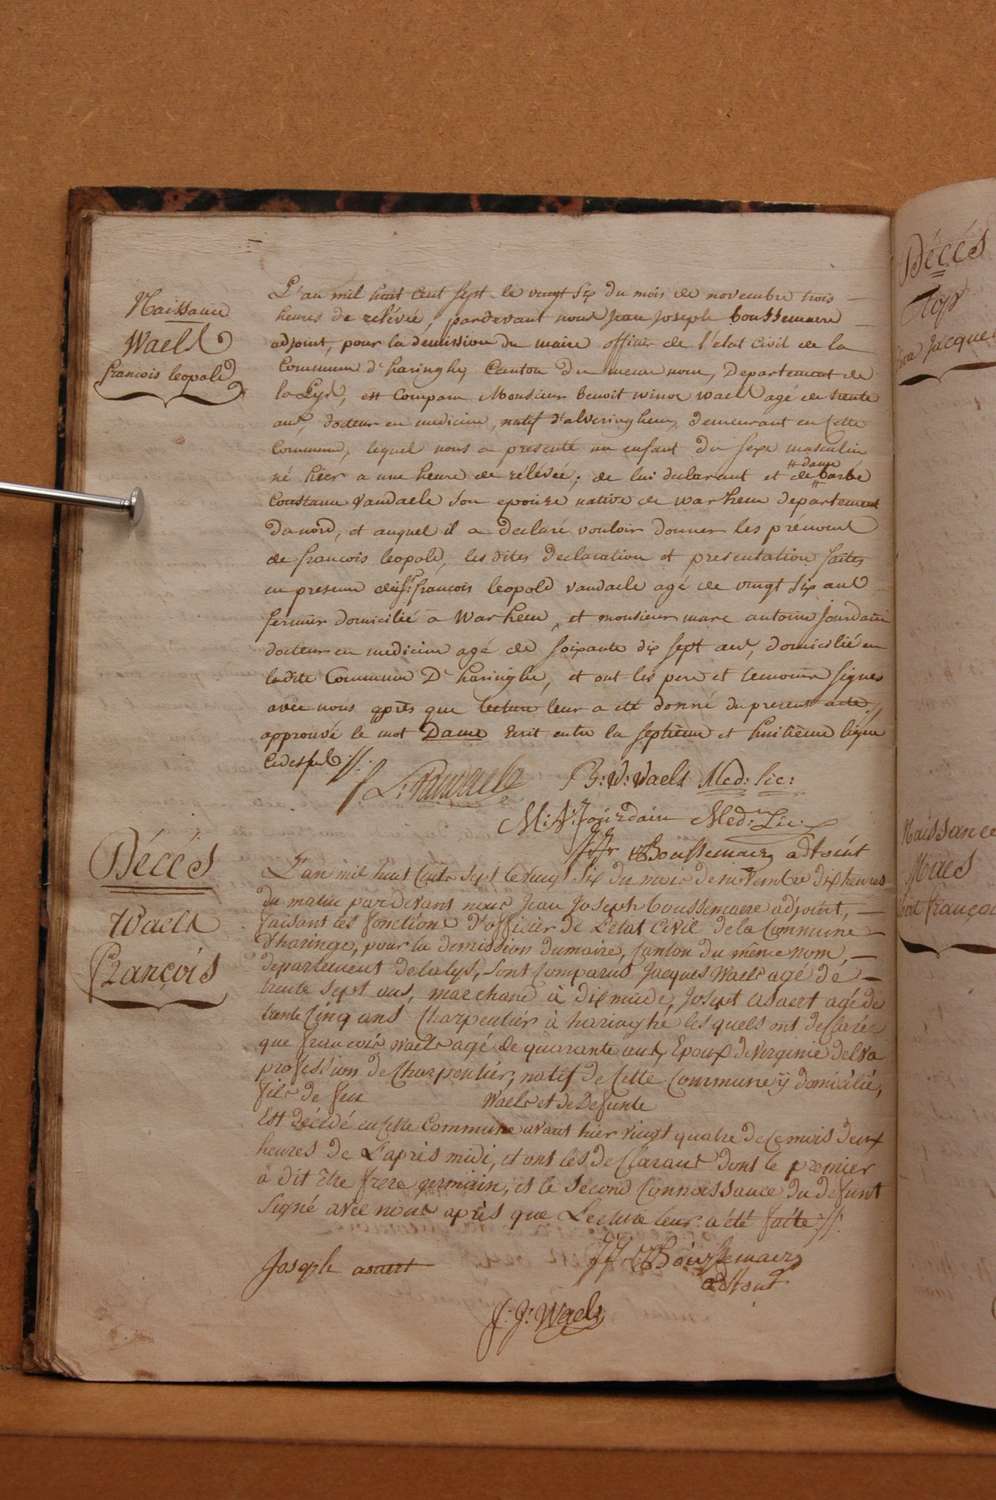 Naissance
Waels
françois leopold
L'an mil huit cent sept le vingt six du mois de novembre trois
heures de relévée, pardevant nous Jean Joseph boussemaere
adjoint, pour la demission du maire officier de l'état Civil de la
Commune d'haringhe, Canton du meme nom, Departement de
la Lys, est Comparu Monsieur Benoit winoc waels agé de trente
ans, docteur en medicine, natif d'alveringhem, demeurant en Cette
Commune, lequel nous a presenté un enfant du sexe masculin
né hier a une heure de relévée, de lui declarant et de dame barbe
Constance vandaele son epouse native de warhem departement
du nord, et auquel il a declaré vouloir donner les prenoms
de françois leopold, les dites declaration et presentation faites
en presence de françois leopold vandaele agé de vingt six ans
fermier domicilié a warhem, et monsieur marc antoine jourdain
docteur en medicine agé de soixante dix sept ans, domicilié en
ladite Commune D'haringhe, et ont les pere et temoins signés
avec nous après que lecture leur a été donné du present acte,
approuvé le mot Dame Ecrit entre la septième et huitième ligne
cidessus //.
f. L. Vandaele B: W: Waels Med: Lic:
M: A: Jourdain Med: Lic:
JJ Boussemaere adjoint
Décés
Waels
François
L'an mil huit Cent sept le vingt six du mois de novembre dix heures
du matin pardevant nous Jean Joseph boussemaere adjoint,
faisant les fonction d'officier de l'état Civil de la Commune
d'haringe, pour la demission du maire, Canton du même nom,
departement de la lys, sont Comparus Jacques Waels agé de
trente sept ans, marchand à dixmude, Joseph asaert agé de
trente Cinq ans Charpentier à haringhe les quels ont declarés
que françois waels agé de quarante ans, Epoux de virginie delva
profession de Charpentier, natif de Cette Commune y domicilié,
fils de feu Waels et de Defunte
Est decédé en cette Commune avant hier vingt quatre de ce mois deux
heures de l'aprés midi, et ont les declarant dont le premier
à dit être frere germain, et le second Connoissance du defunt
signé avec nous après que Lecture leur a été faite //.
Joseph asaert JJ Boussemaere
adjoint
J: J: Waels
Décés
Top
Jacques
Naissance
Maes
françois